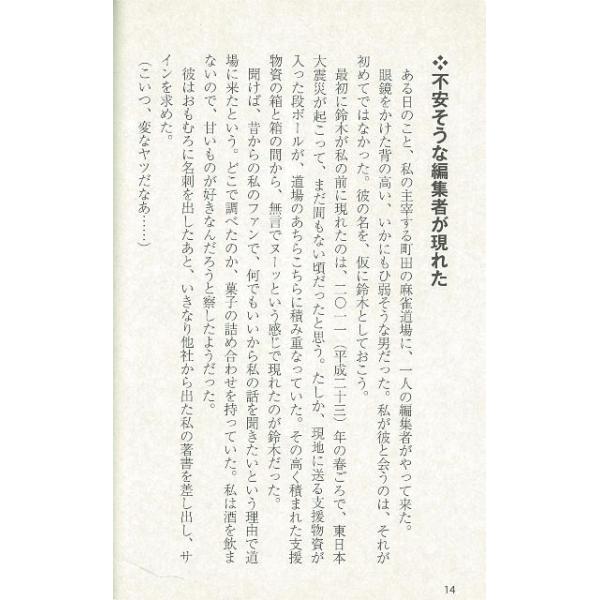 ❖不安そうな編集者が現れた
ある日のこと、私の主宰する町田の麻雀道場に、一人の編集者がやって来た。
眼鏡をかけた背の高い、いかにもひ弱そうな男だった。私が彼と会うのは、それが
初めてではなかった。彼の名を、仮に鈴木としておこう。
最初に鈴木が私の前に現れたのは、二〇一一（平成二十三）年の春ごろで、東日本
大震災が起こって、まだ間もない頃だったと思う。たしか、現地に送る支援物資が
入った段ボールが、道場のあちらこちらに積み重なっていた。その高く積まれた支援
物資の箱と箱の間から、無言でヌーッという感じで現れたのが鈴木だった。
聞けば、昔からの私のファンで、何でもいいから私の話を聞きたいという理由で道
場に来たという。どこで調べたのか、菓子の詰め合わせを持っていた。私は酒を飲ま
ないので、甘いものが好きなんだろうと察したようだった。
彼はおもむろに名刺を出したあと、いきなり他社から出た私の著書を差し出し、サ
インを求めた。
（こいつ、変なヤツだなあ……）
14